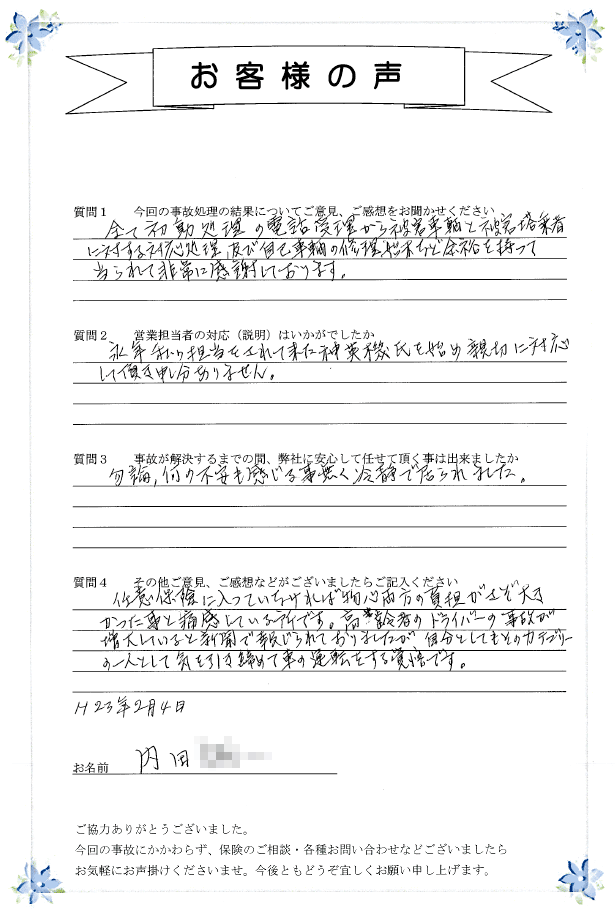 お客様の声
質問１　今回の事故処理の結果についてご意見、ご感想をお聞かせください
全て初動処理の電話受理から被害車輌と被害搭乗者
に対する対応処理,及び自己車輌の修理始末など余裕を持って
当られて非常に感謝しております。
質問２　営業担当者の対応（説明）はいかがでしたか
永年私の担当をされて来た神英機氏を始め親切に対応
して頂き申し分ありません。
質問３　事故が解決するまでの間、弊社に安心して任せて頂く事は出来ましたか
勿論,何の不安も感じる事無く冷静で居られました。
質問４　その他ご意見、ご感想などがございましたらご記入ください
任意保険に入っていなければ物心両方の負担がさぞ大き
かった事と痛感している所です。高令齢者のドライバーの事故が
増大していると新聞で報じられておりましたが自分としてもそのカテゴリー
の一人として気を引き締めて車の運転をする覚悟です。
H23年2月4日
お名前　内田
ご協力ありがとうございました。
今回の事故にかかわらず、保険のご相談・各種お問い合わせなどございましたら
お気軽にお声掛けくださいませ。今後ともどうぞ宜しくお願い申し上げます。